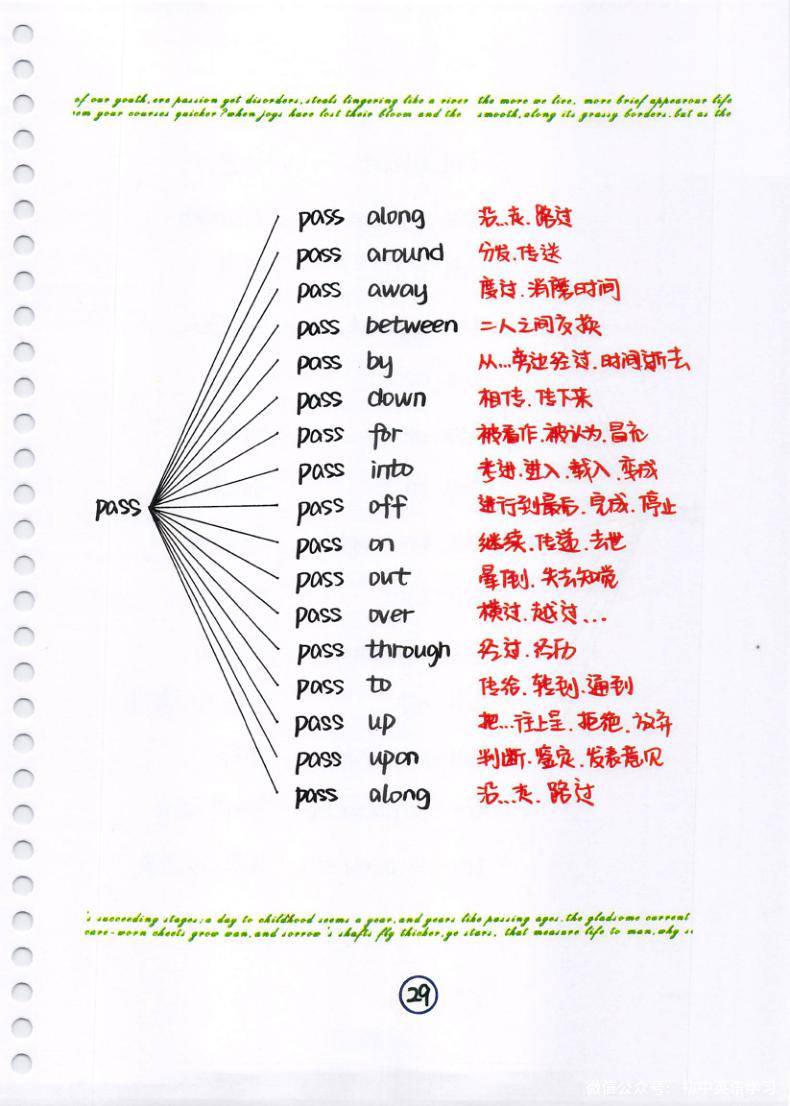 of our youth,ere passion yet disorders,steals lingering like a river the more we live, more brief appearour life
em your courses quicker?when joys have lost their bloom and the smooth,along its grassy borders.but as the
pass along 沿...走.路过
pass around 分发.传送
pass away 度过.消磨时间
pass between 二人之间交换
pass by 从...旁边经过.时间逝去
pass down 相传.传下来
pass for 被看作.被认为.冒充
pass into 考进.进入.载入.变成
pass off 进行到最后.完成.停止
pass
pass on 继续.传递.去世
pass out 晕倒.失去知觉
pass over 横过.越过...
pass through 经过.经历
pass to 传给.转到.通到
pass up 把...往上呈.拒绝.放弃
pass upon 判断.鉴定.发表意见
pass along 沿...走.路过
's succeeding stages;a day to childhood seems a year,and years like passing ages.the gladsome current
care-worn cheets grow wan,and sorrow's shafts fly thicker,ye stars, that measure life to man,why s
29
微信公众号:初中英语学习